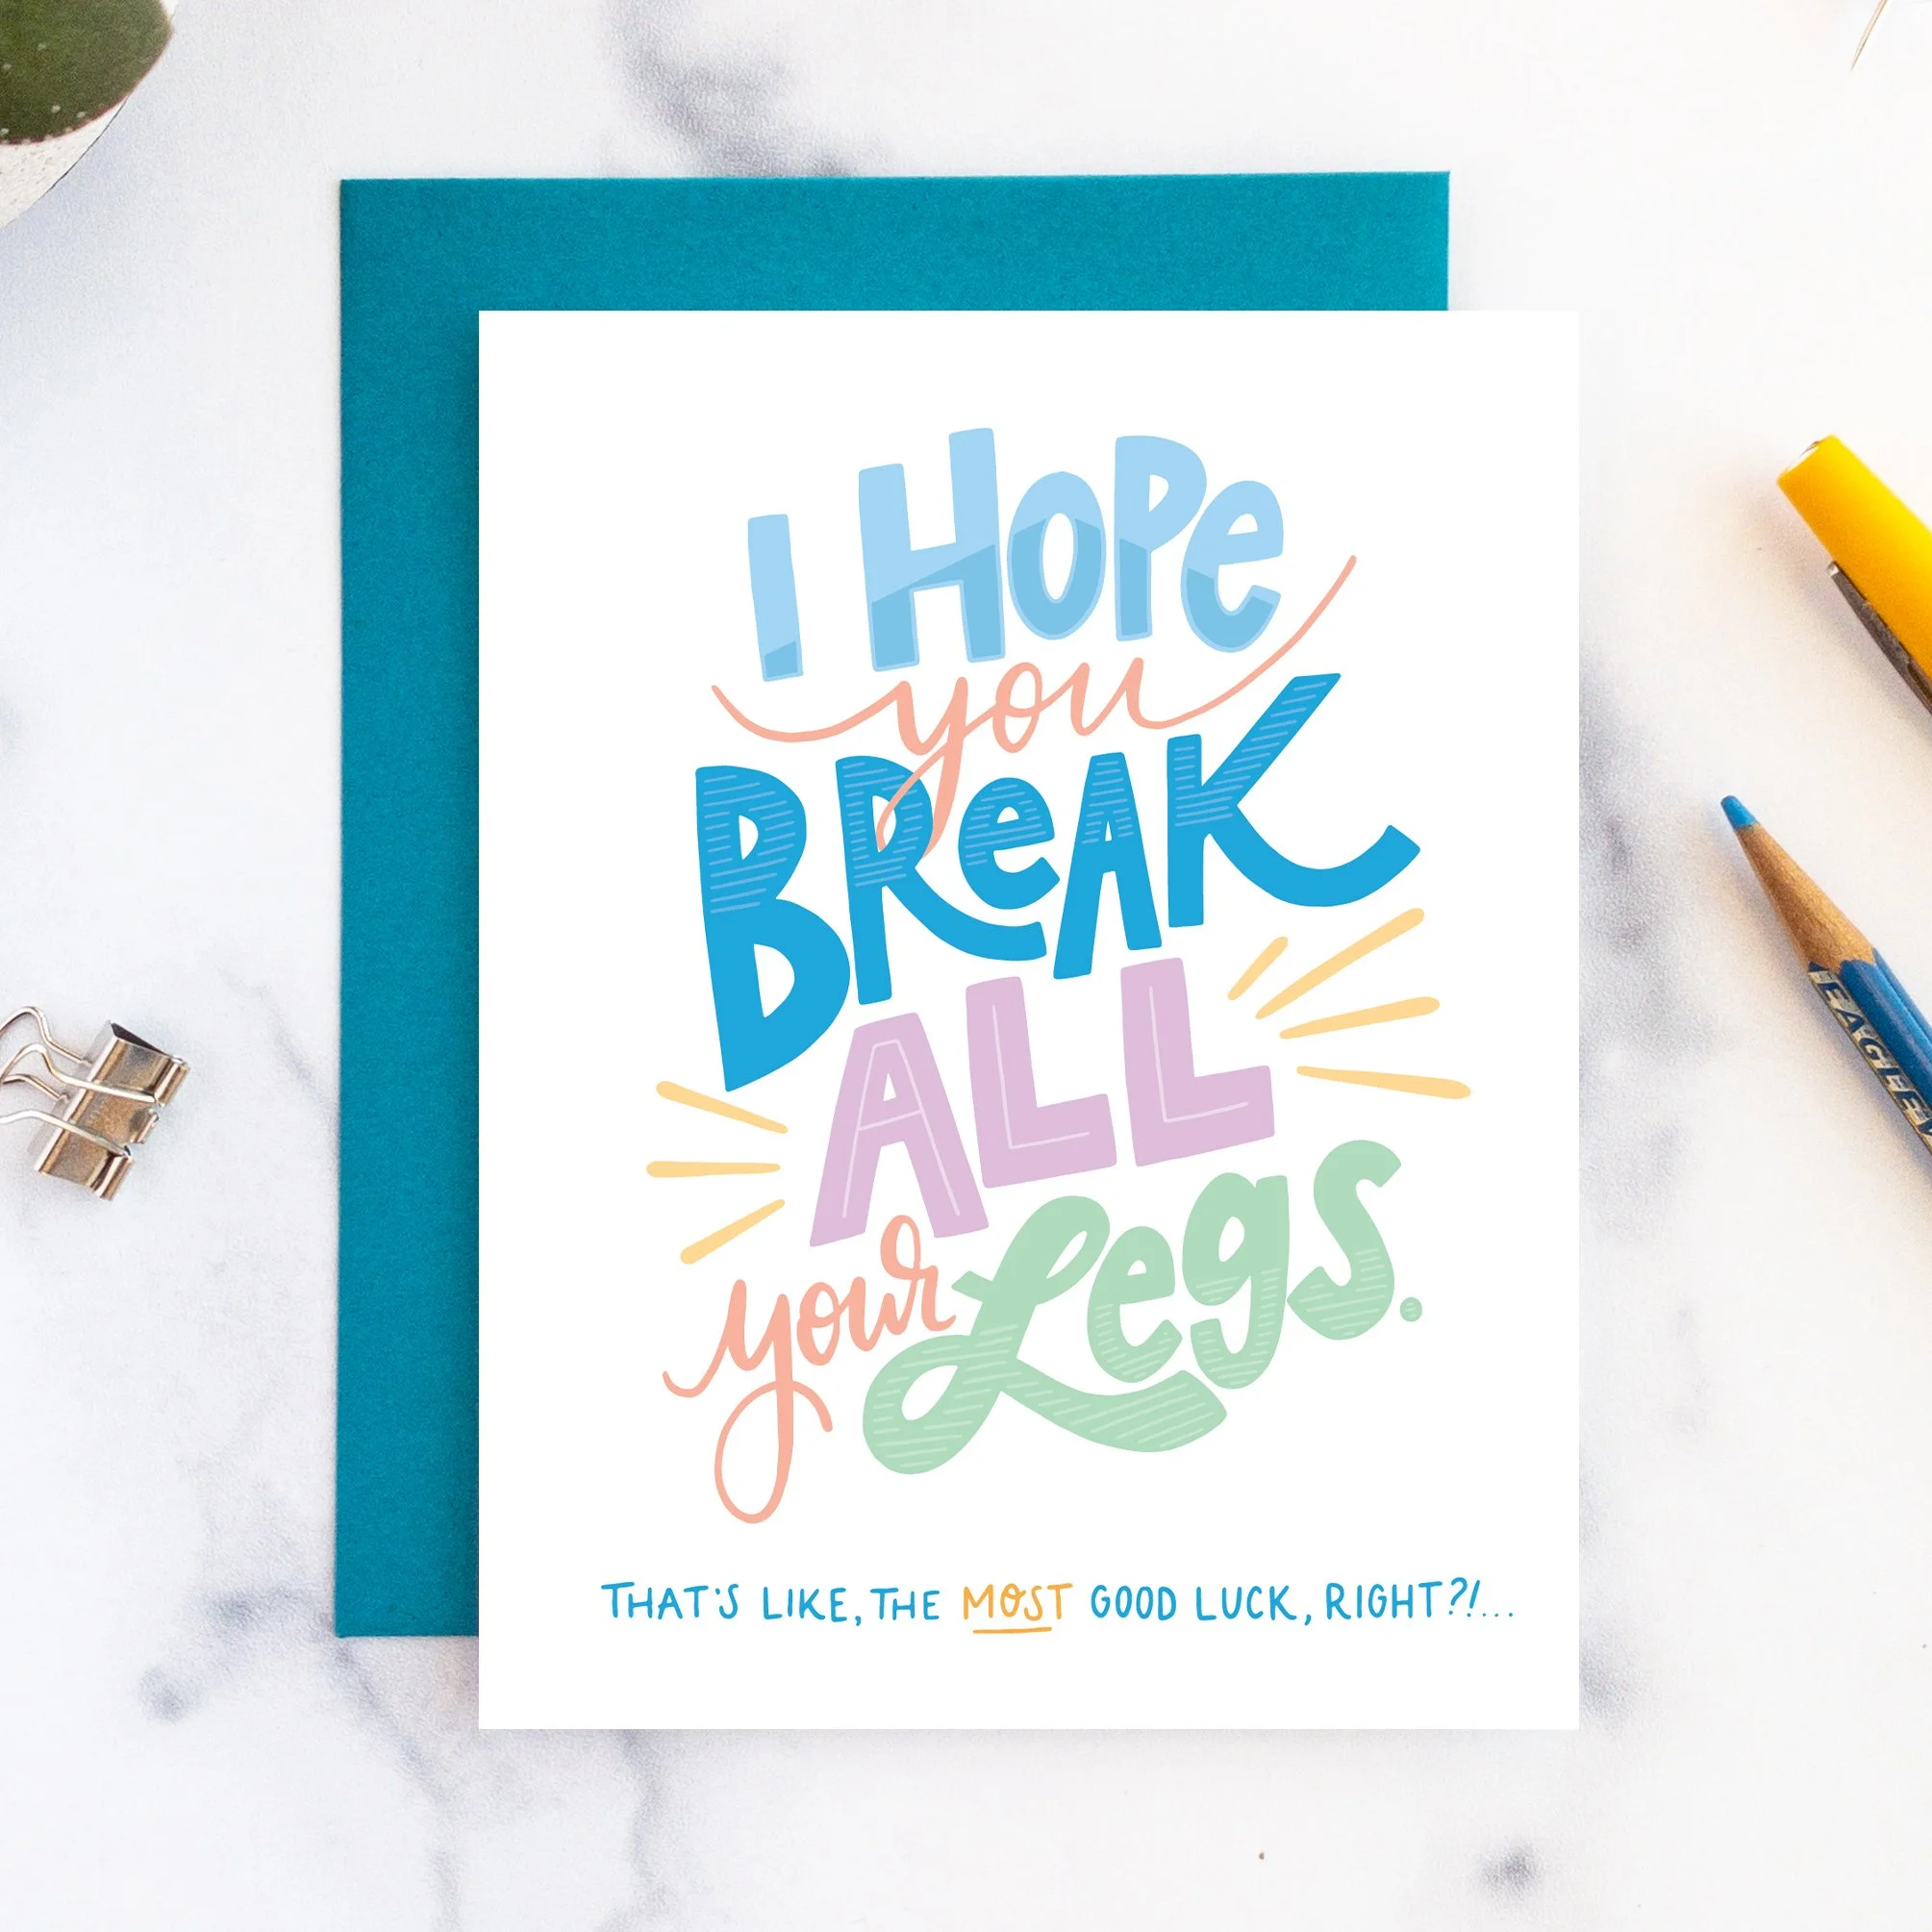 I HOPe
you
BReAK
ALL
your Legs.
THAT'S LIKE, THE MOST GOOD LUCK, RIGHT?!...
EAGLE